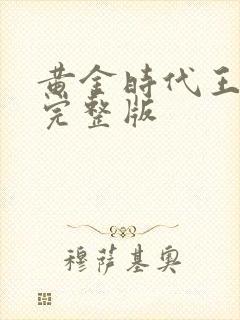 黄金時代王
完整版
穆薩基奧